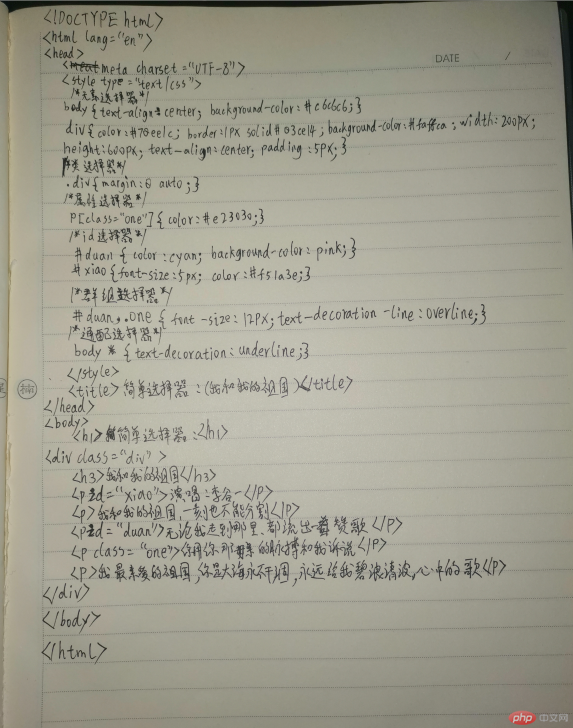 <!DOCTYPE html>
<html lang="en">
<head>
DATE /
<meta charset="UTF-8">
<style type="text/css">
/*元素选择器*/
body{text-align:center; background-color:#c6c6c6;}
div{color:#70ee1c; border:1px solid #03ce14; background-color:#faffca; width:200px;
height:600px; text-align:center; padding:5px;}
/*类选择器*/
.div{margin:0 auto;}
/*属性选择器*/
P[class="one"]{color:#e23030;}
/*id选择器*/
#duan {color:cyan; background-color:pink;}
#xiao{font-size:5px; color:#f51a3e;}
/*群组选择器*/
#duan,.one {font-size:12px; text-decoration-line:overline;}
/*通配选择器*/
body *{text-decoration:underline;}
</style>
<title>简单选择器:(我和我的祖国)</title>
楠
</head>
<body>
<h1>简单选择器:</h1>
<div class="div">
<h3>我和我的祖国</h3>
<p id="xiao">演唱:李谷一</P>
<p>我和我的祖国,一刻也不能分割</P>
<p id="duan">无论我走到哪里,都流出一首赞歌</P>
<p class="one">你那 的脉搏和我诉说</P>
<P>我最亲爱的祖国,你是大海永不干涸,永远给我碧浪清波,心中的歌<P>
</div>
</body>
</html>
php 中文网